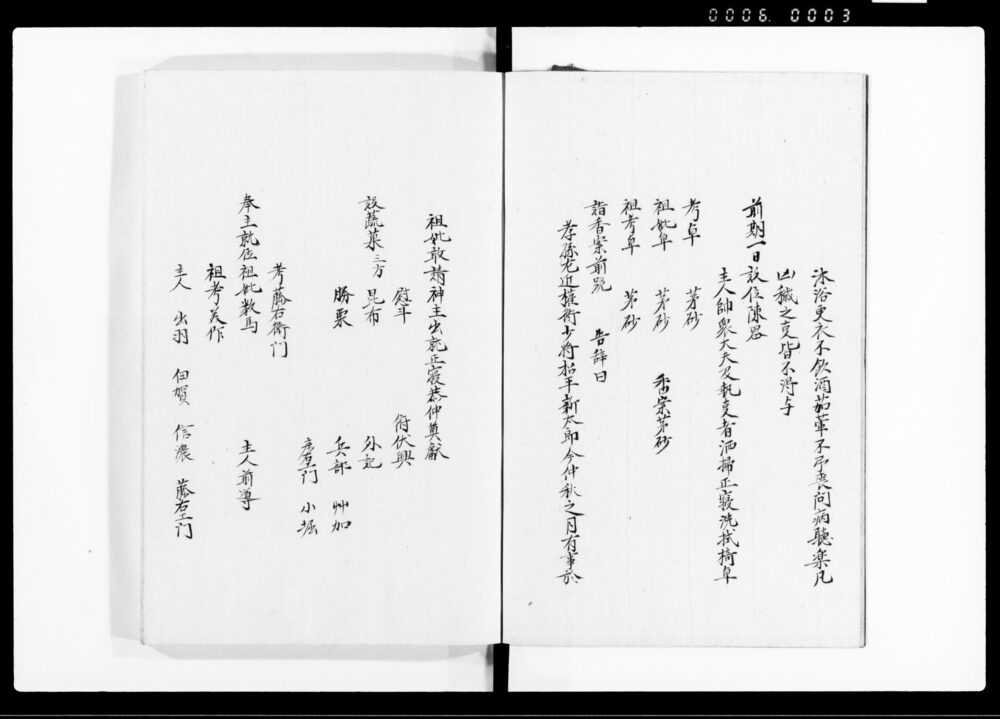 0006. 0003
沐浴更衣不飲酒茹葷不弔喪問病聴楽凡
凶穢之事皆不得与
前期一日設位陳器
主人帥衆大夫及執事者洒掃正寝洗拭椅卓
考卓 茅砂
祖妣卓 茅砂 香案茅砂
祖考卓 茅砂
詣香案前跪 告辞曰
孝孫左近権衛少将松平新太郎今仲秋之月有事於
祖妣敢請神主出就正寝恭伸奠献
俯伏興
設蔬菓 三方 熨斗 昆布 勝栗
外記
兵部 艸加
小堀
考藤右衛門
奉主就位祖妣数馬 主人前導
祖考美作
主人 出羽 伯賀 信濃 藤右衛門